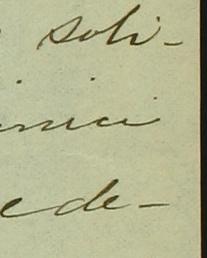 soli-
inici
ede-